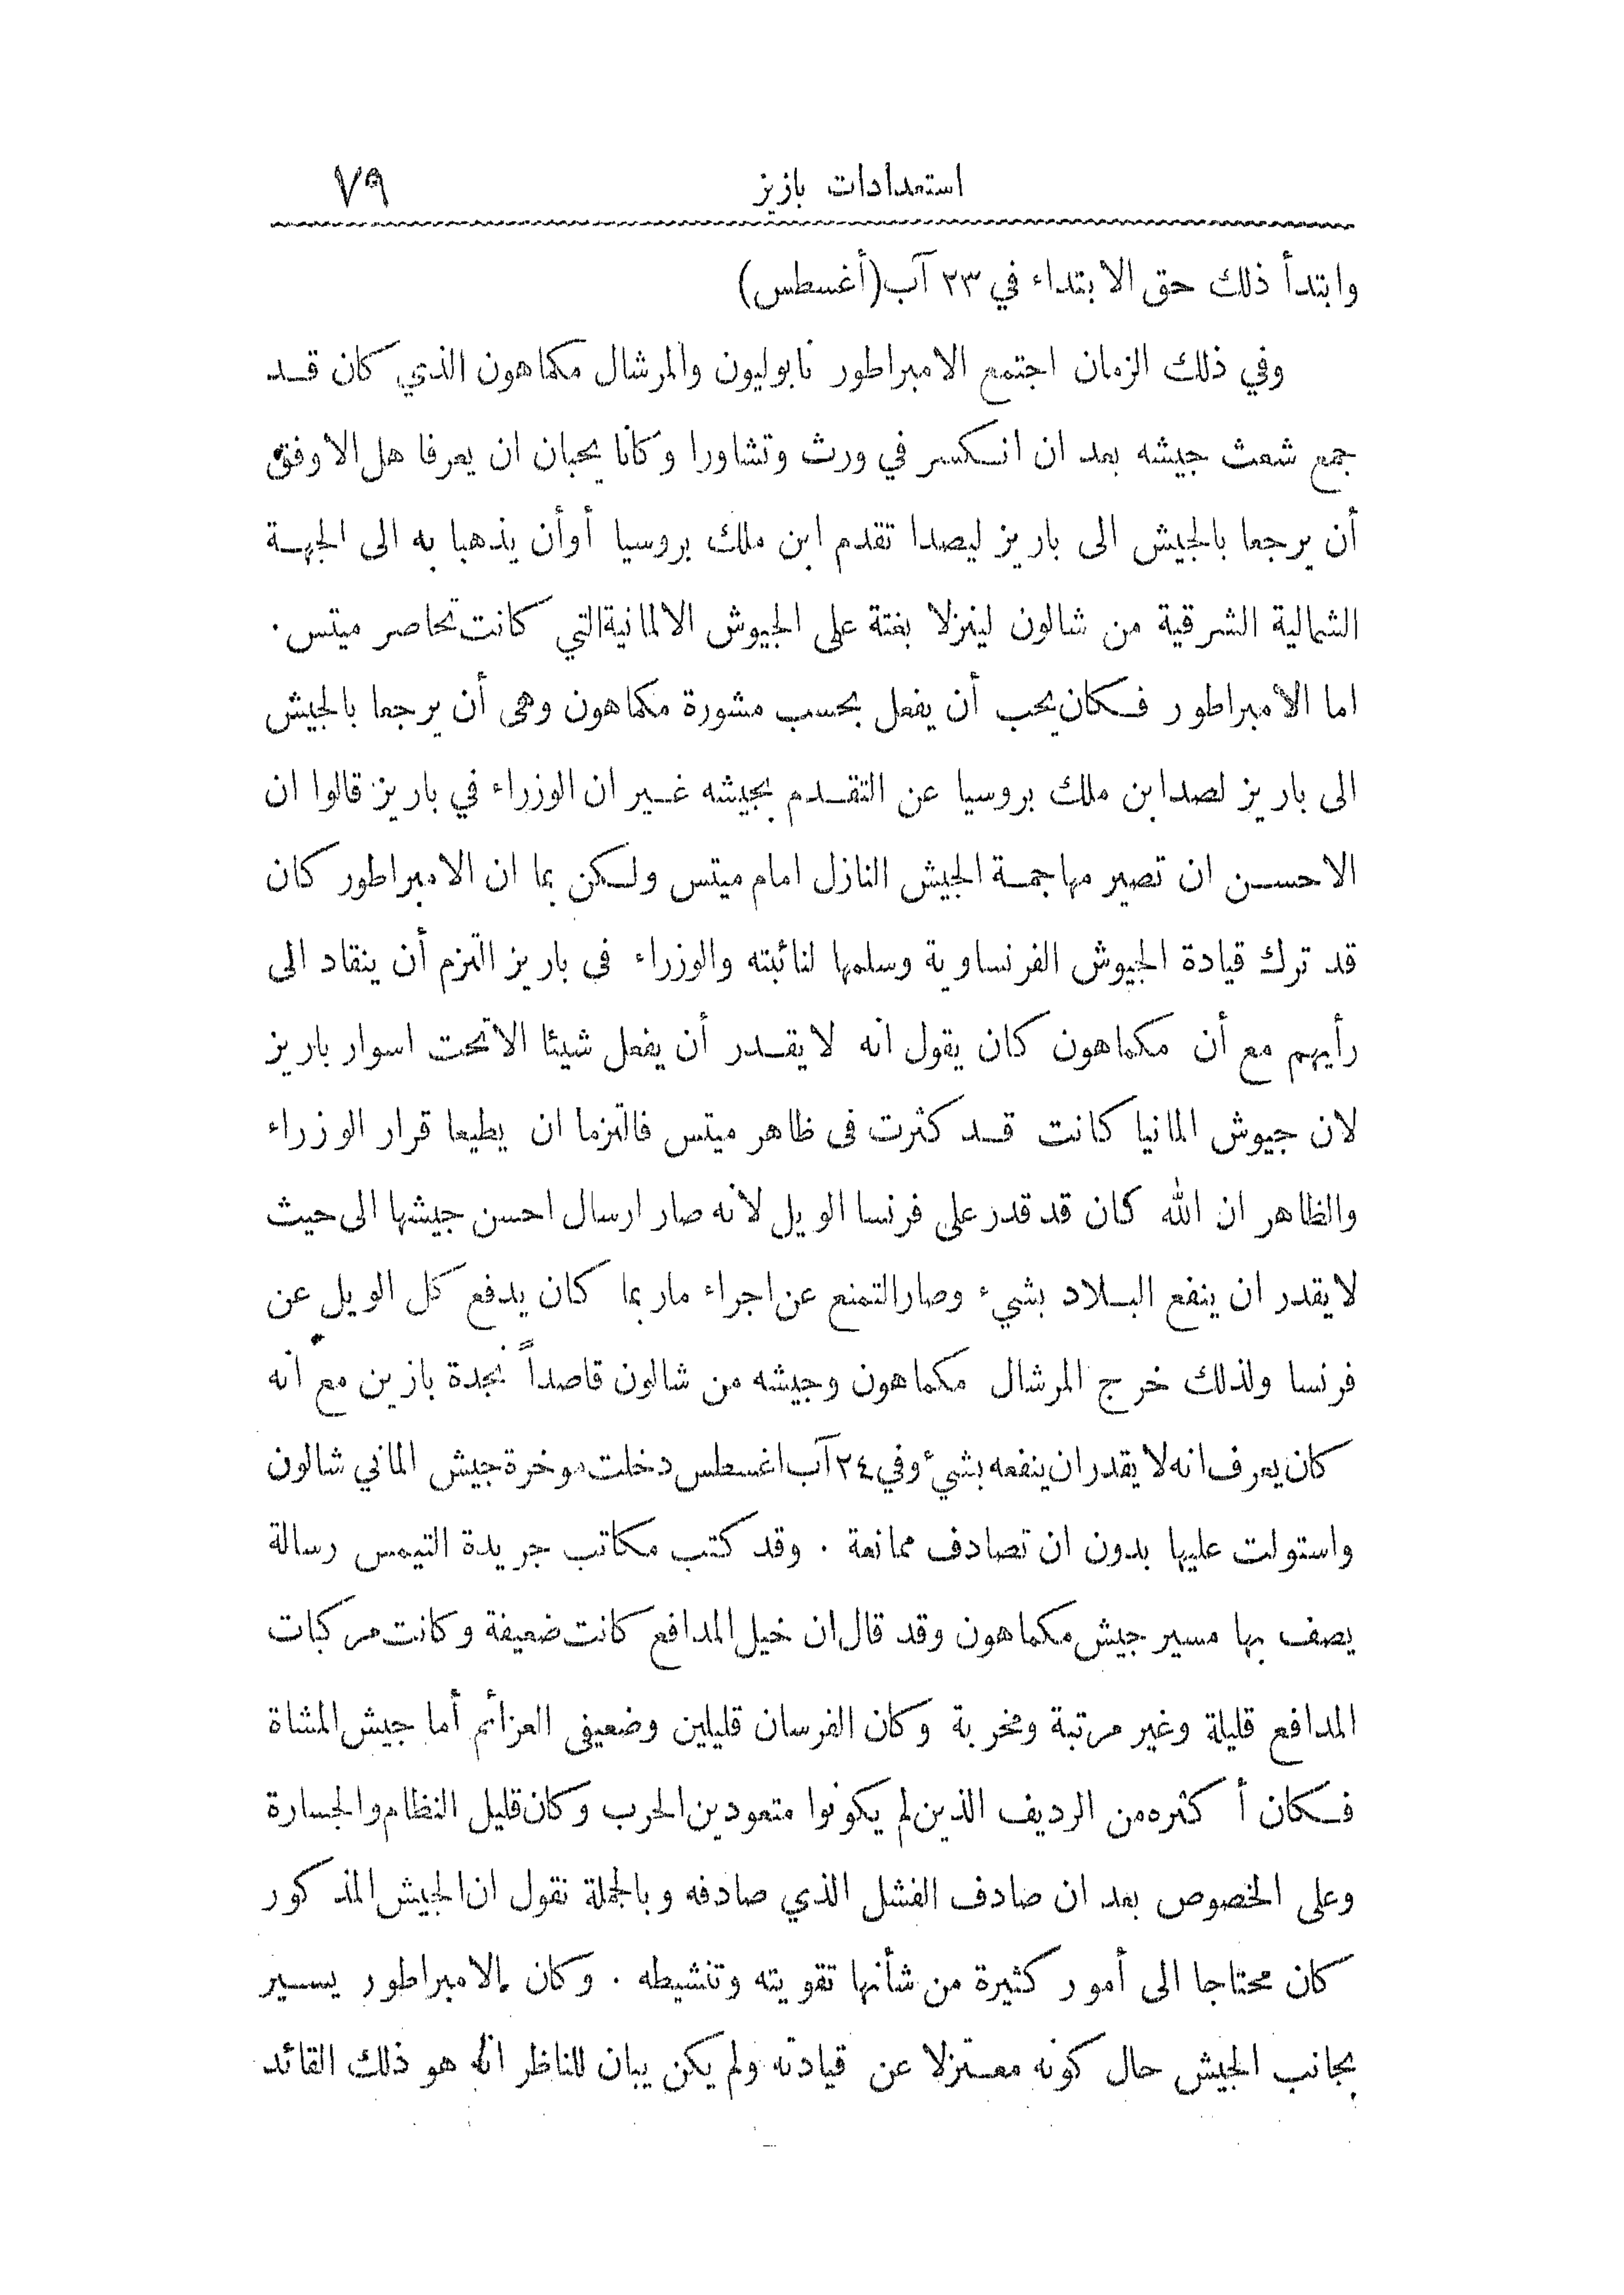 استعدادات بازيز ٧٩
وابتدأ ذلك حق الابتداء في ٢٣ آب (أغسطس)
وفي ذلك الزمان اجتمع الامبراطور نابوليون والمرشال مكماهون الذي كان قد
جمع شعث جيشه بعد ان انكسر في ورث وتشاورا وكانا يحبان ان يعرفا هل الاوفق
أن يرجعا بالجيش الى باريز ليصدا تقدم ابن ملك بروسيا أو أن يذهبا به الى الجهة
الشمالية الشرقية من شالون لينزلا بغتة على الجيوش الالمانية التي كانت تحاصر ميتس .
اما الأمبراطور فكان يحب أن يفعل بحسب مشورة مكماهون وهى أن يرجعا بالجيش
الى باريز لصد ابن ملك بروسيا عن التقدم بجيشه غير ان الوزراء في باريز قالوا ان
الاحسن ان تصير مهاجمة الجيش النازل امام ميتس ولكن بما ان الامبراطور كان
قد ترك قيادة الجيوش الفرنساوية وسلمها لنائبته والوزراء فى باريز التزم أن ينقاد الى
رأيهم مع أن مكماهون كان يقول انه لا يقدر أن يفعل شيئا الا تحت اسوار باريز
لان جيوش المانيا كانت قد كثرت فى ظاهر ميتس فالتزما ان يطيعا قرار الوزراء
والظاهر ان الله كان قد قدر على فرنسا الويل لانه صار ارسال احسن جيشها الى حيث
لا يقدر ان ينفع البلاد بشيء وصار التمنع عن اجراء ما ربما كان يدفع كل الويل عن
فرنسا ولذلك خرج المرشال مكماهون وجيشه من شالون قاصداً نجدة بازين مع انه
كان يعرف انه لا يقدر ان ينفعه بشيْ وفي ٢٤ آب اغسطس دخلت موخرة جيش الماني شالون
واستولت عليها بدون ان تصادف ممانعة . وقد كتب مكاتب جريدة التيمس رسالة
يصف بها مسير جيش مكماهون وقد قال ان خيل المدافع كانت ضعيفة وكانت مركبات
المدافع قليلة وغير مرتبة ومخربة وكان الفرسان قليلين وضعيفى العزائم أما جيش المشاة
فكان أكثره من الرديف الذين لم يكونوا متعودين الحرب وكان قليل النظام والجسارة
وعلى الخصوص بعد ان صادف الفشل الذي صادفه وبالجملة نقول ان الجيش المذكور
كان محتاجا الى أمور كثيرة من شأنها تقويته وتنشيطه . وكان الامبراطور يسير
بجانب الجيش حال كونه معتزلا عن قيادته ولم يكن يبان للناظر انه هو ذلك القائد